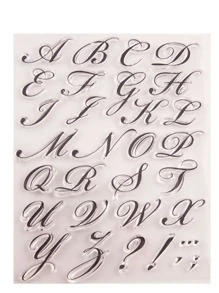 A B C D
E F G H
I J K L
M N O P
Q R S T
U V W X
Y Z ? ! ' : ;